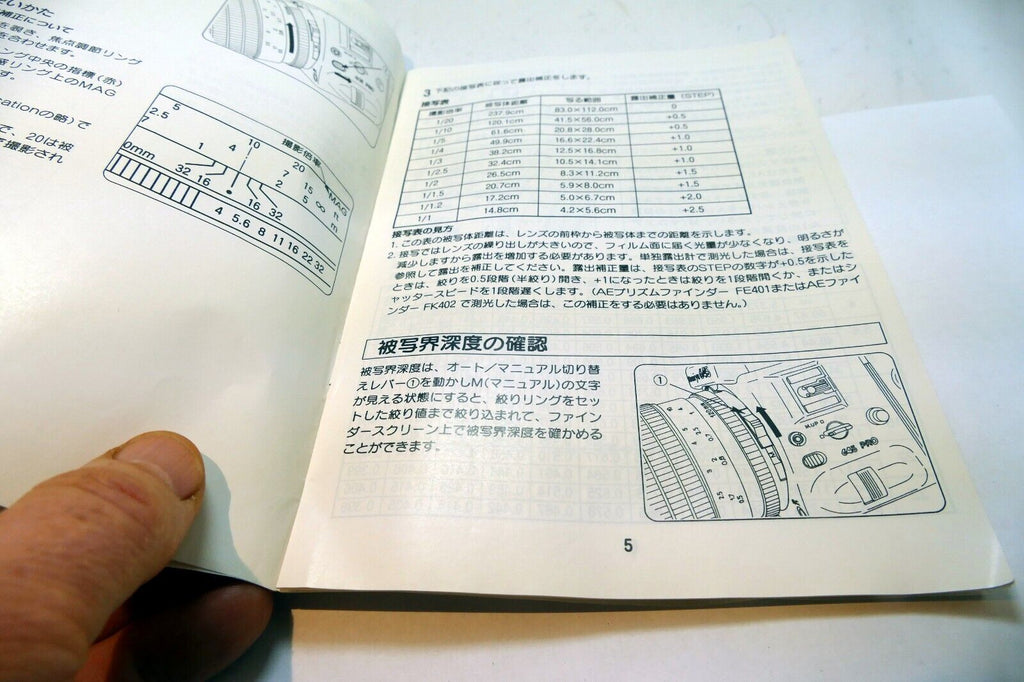 いかた
補正について
を覗き、焦点調節リング
を合わせます。
ング中央の指標(赤)
リング上のMAG
す。
cationの略)で
で、20は被
撮影され
5
2.5
1 4 10 撮影倍率
7 20 MAG
2 15
5 ∞ ft
m
0mm 32 16 • 16 32
4 5.6 8 11 16 22 32
3 下記の接写表に従って露出補正をします。
接写表
撮影倍率 被写体距離 写る範囲 露出補正量 (STEP)
1/20 237.9cm 83.0×112.0cm 0
1/10 120.1cm 41.5×56.0cm +0.5
1/5 61.6cm 20.8×28.0cm +0.5
1/4 49.9cm 16.6×22.4cm +1.0
1/3 38.2cm 12.5×16.8cm +1.0
1/2.5 32.4cm 10.5×14.1cm +1.0
1/2 26.5cm 8.3×11.2cm +1.5
1/1.5 20.7cm 5.9×8.0cm +1.5
1/1.2 17.2cm 5.0×6.7cm +2.0
1/1 14.8cm 4.2×5.6cm +2.5
接写表の見方
1. この表の被写体距離は、レンズの前枠から被写体までの距離を示します。
2. 接写ではレンズの繰り出しが大きいので、フィルム面に届く光量が少なくなり、明るさが
減少しますから露出を増加する必要があります。単独露出計で測光した場合は、接写表を
参照して露出を補正してください。露出補正量は、接写表のSTEPの数字が+0.5を示した
ときは、絞りを0.5段階(半絞り)開き、+1になったときは絞りを1段階開くか、またはシ
ャッタースピードを1段階遅くします。(AEプリズムファインダー FE401またはAEファイ
ンダー FK402 で測光した場合は、この補正をする必要はありません。)
被写界深度の確認
被写界深度は、オート/マニュアル切り替
えレバー①を動かしM(マニュアル)の文字
が見える状態にすると、絞りリングをセッ
トした絞り値まで絞り込まれて、ファイン
ダースクリーン上で被写界深度を確かめる
ことができます。
①
M.UP
645 PRO
5